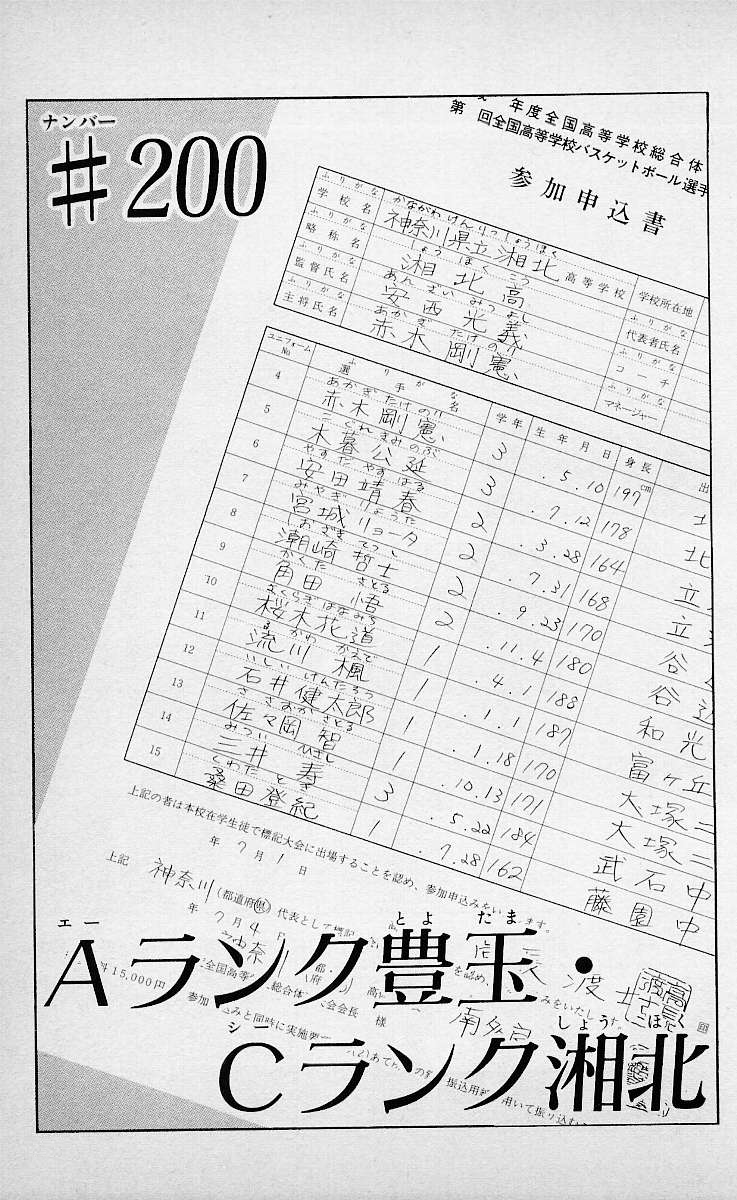 ナンバー
#200
年度全国高等学校総合体
第 回全国高等学校バスケットボール選手
参加申込書
ふりがな かながわけんりつしょうほく
学校名 神奈川県立湘北 高等学校 学校所在地
ふりがな しょうほくこう ふりがな
略称名 湘北高 代表者氏名
ふりがな あんざいみつよし ふりがな
監督氏名 安西光義 コーチ
ふりがな あかぎたけのり ふりがな
主将氏名 赤木剛憲 マネージャー
ユニフォームNo ふりがな 選手名 学年 生年月日 身長 出
4 あかぎたけのり 赤木剛憲 3 .5.10 197cm 北
5 こぐれきみのぶ 木暮公延 3 .7.12 178 北
6 やすだやすはる 安田靖春 2 .3.28 164 立
7 みやぎりょうた 宮城リョータ 2 .7.31 168 立
8 しおざきてつし 潮崎哲士 2 .9.23 170 谷
9 かくたさとる 角田悟 2 .11.4 180 谷
10 さくらぎはなみち 桜木花道 1 .4.1 188 和光
11 るかわかえで 流川楓 1 .1.1 187 富ヶ丘
12 いしいけんたろう 石井健太郎 1 .1.18 170 大塚二
13 ささおかさとる 佐々岡智 1 .10.13 171 大塚二
14 みついひさし 三井寿 3 .5.22 184 武石中
15 くわたとき 桑田登紀 1 .7.28 162 藤園中
上記の者は本校在学生徒で標記大会に出場することを認め、参加申込みをいたします。
年 7月 1日
上記 神奈川 (都道府県) 代表として
年 7月 4
神奈川
を認め、
みをいたします。
全国高等
総合体
会会長 様
¥15,000円
参加
みと同時に実施要
振込用紙
用いて振り込む
エー とよだま
Aランク豊玉・
シー しょうほく
Cランク湘北